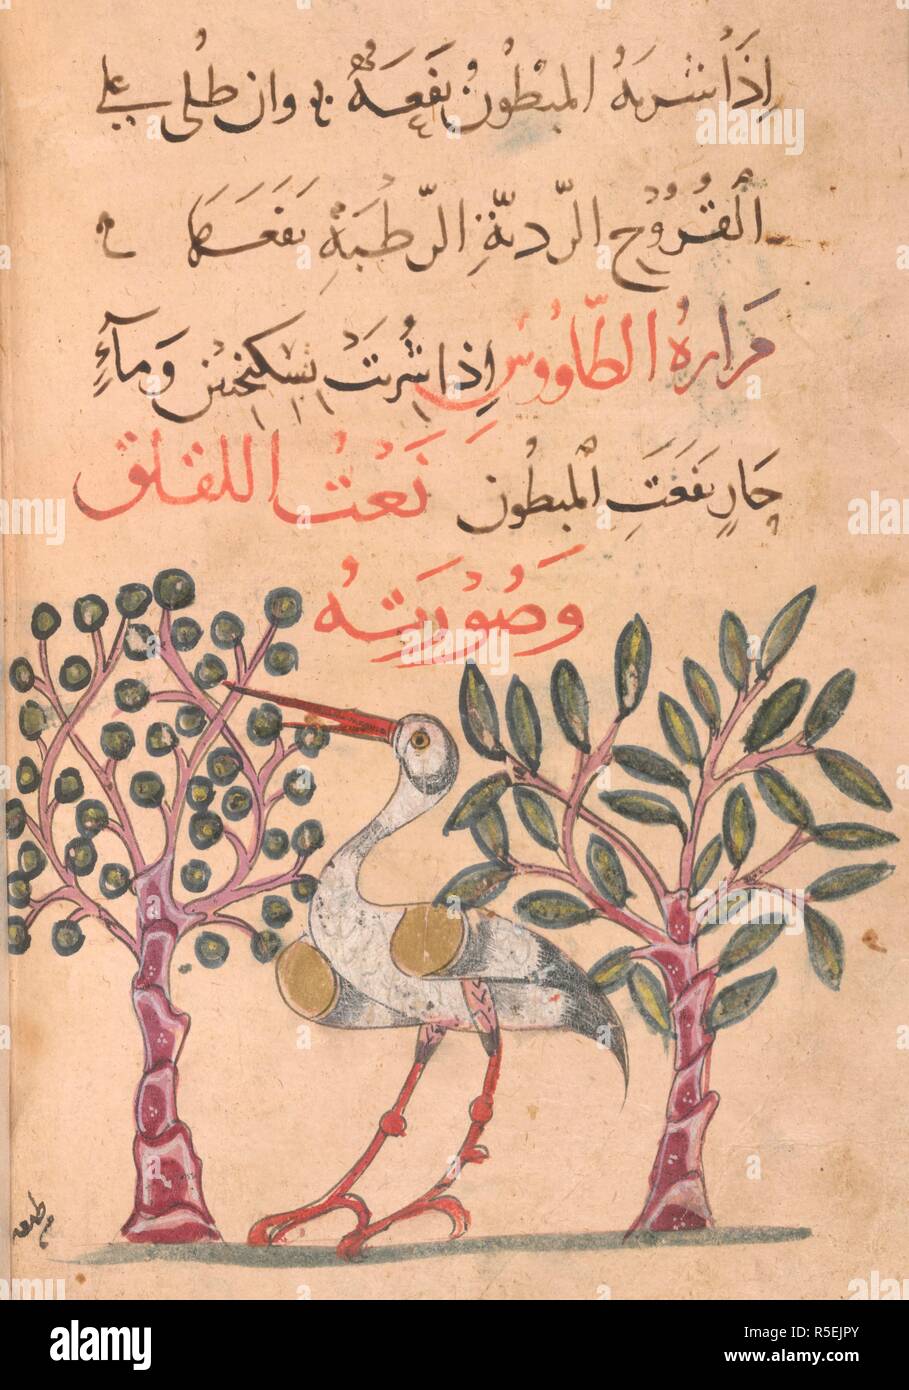 إِذَا شربهُ المبْطُونُ نَفَعَهُ وان طُلى على
القُرُوُح الرّديّةِ الرّطبَةِ نَفَعَهَا
مرارهُ الطّاووُس إذا شُربَتْ بسكنجبين وَمآءٍ
حَارٍ نفَعَتِ المبطُون نَعْتُ اللقلق
وَصُوْرَتهُ
alamy
Image ID: R5EJPY
www.alamy.com